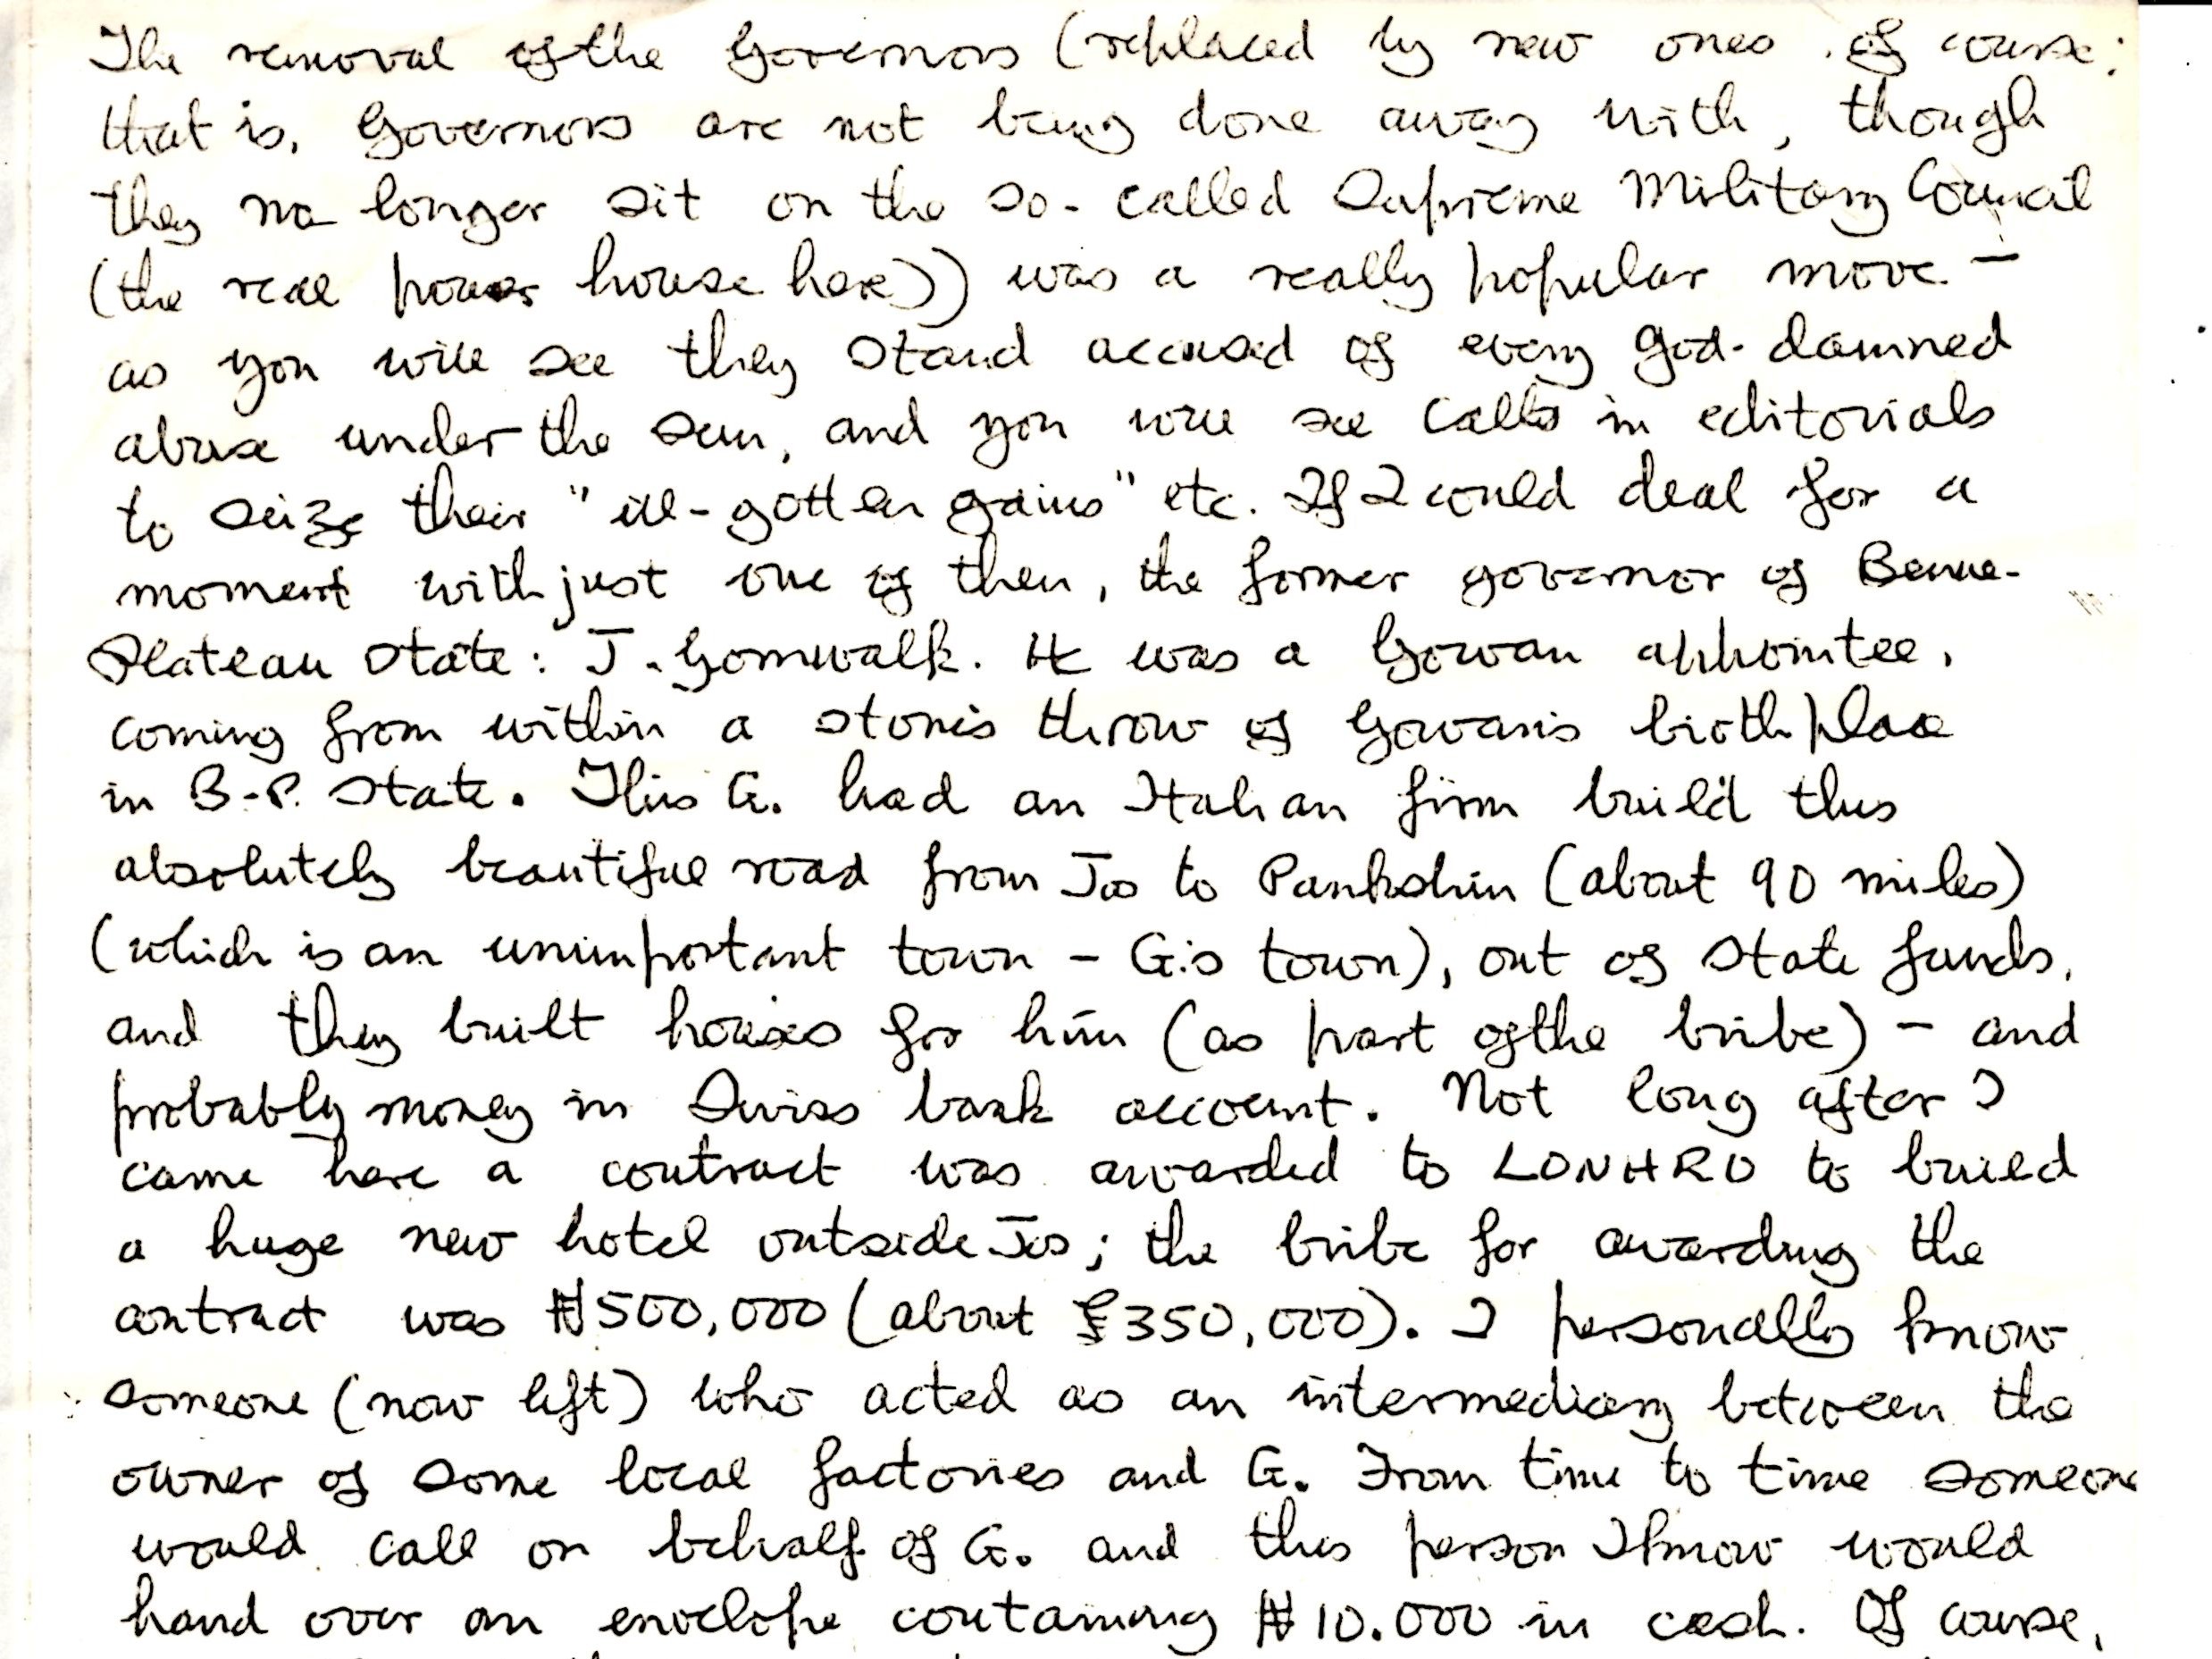 The removal of the Governors (replaced by new ones, of course;
that is, Governors are not being done away with, though
they no longer sit on the so-called Supreme Military Council
(the real power house here)) was a really popular move –
as you will see they stand accused of every god-damned
abuse under the sun, and you will see calls in editorials
to seize their "ill-gotten gains" etc. If I could deal for a
moment with just one of them, the former governor of Benue-
Plateau State: J. Gomwalk. He was a Gowan appointee,
coming from within a stone's throw of Gowan's birthplace
in B-P. State. This G. had an Italian firm build this
absolutely beautiful road from Jos to Pankshin (about 90 miles)
(which is an unimportant town – G.'s town), out of State funds,
and they built houses for him (as part of the bribe) – and
probably money in Swiss bank account. Not long after I
came here a contract was awarded to LONHRO to build
a huge new hotel outside Jos; the bribe for awarding the
contract was ₦500,000 (about £350,000). I personally know
someone (now left) who acted as an intermediary between the
owner of some local factories and G. From time to time someone
would call on behalf of G. and this person I know would
hand over an envelope containing ₦10.000 in cash. Of course,